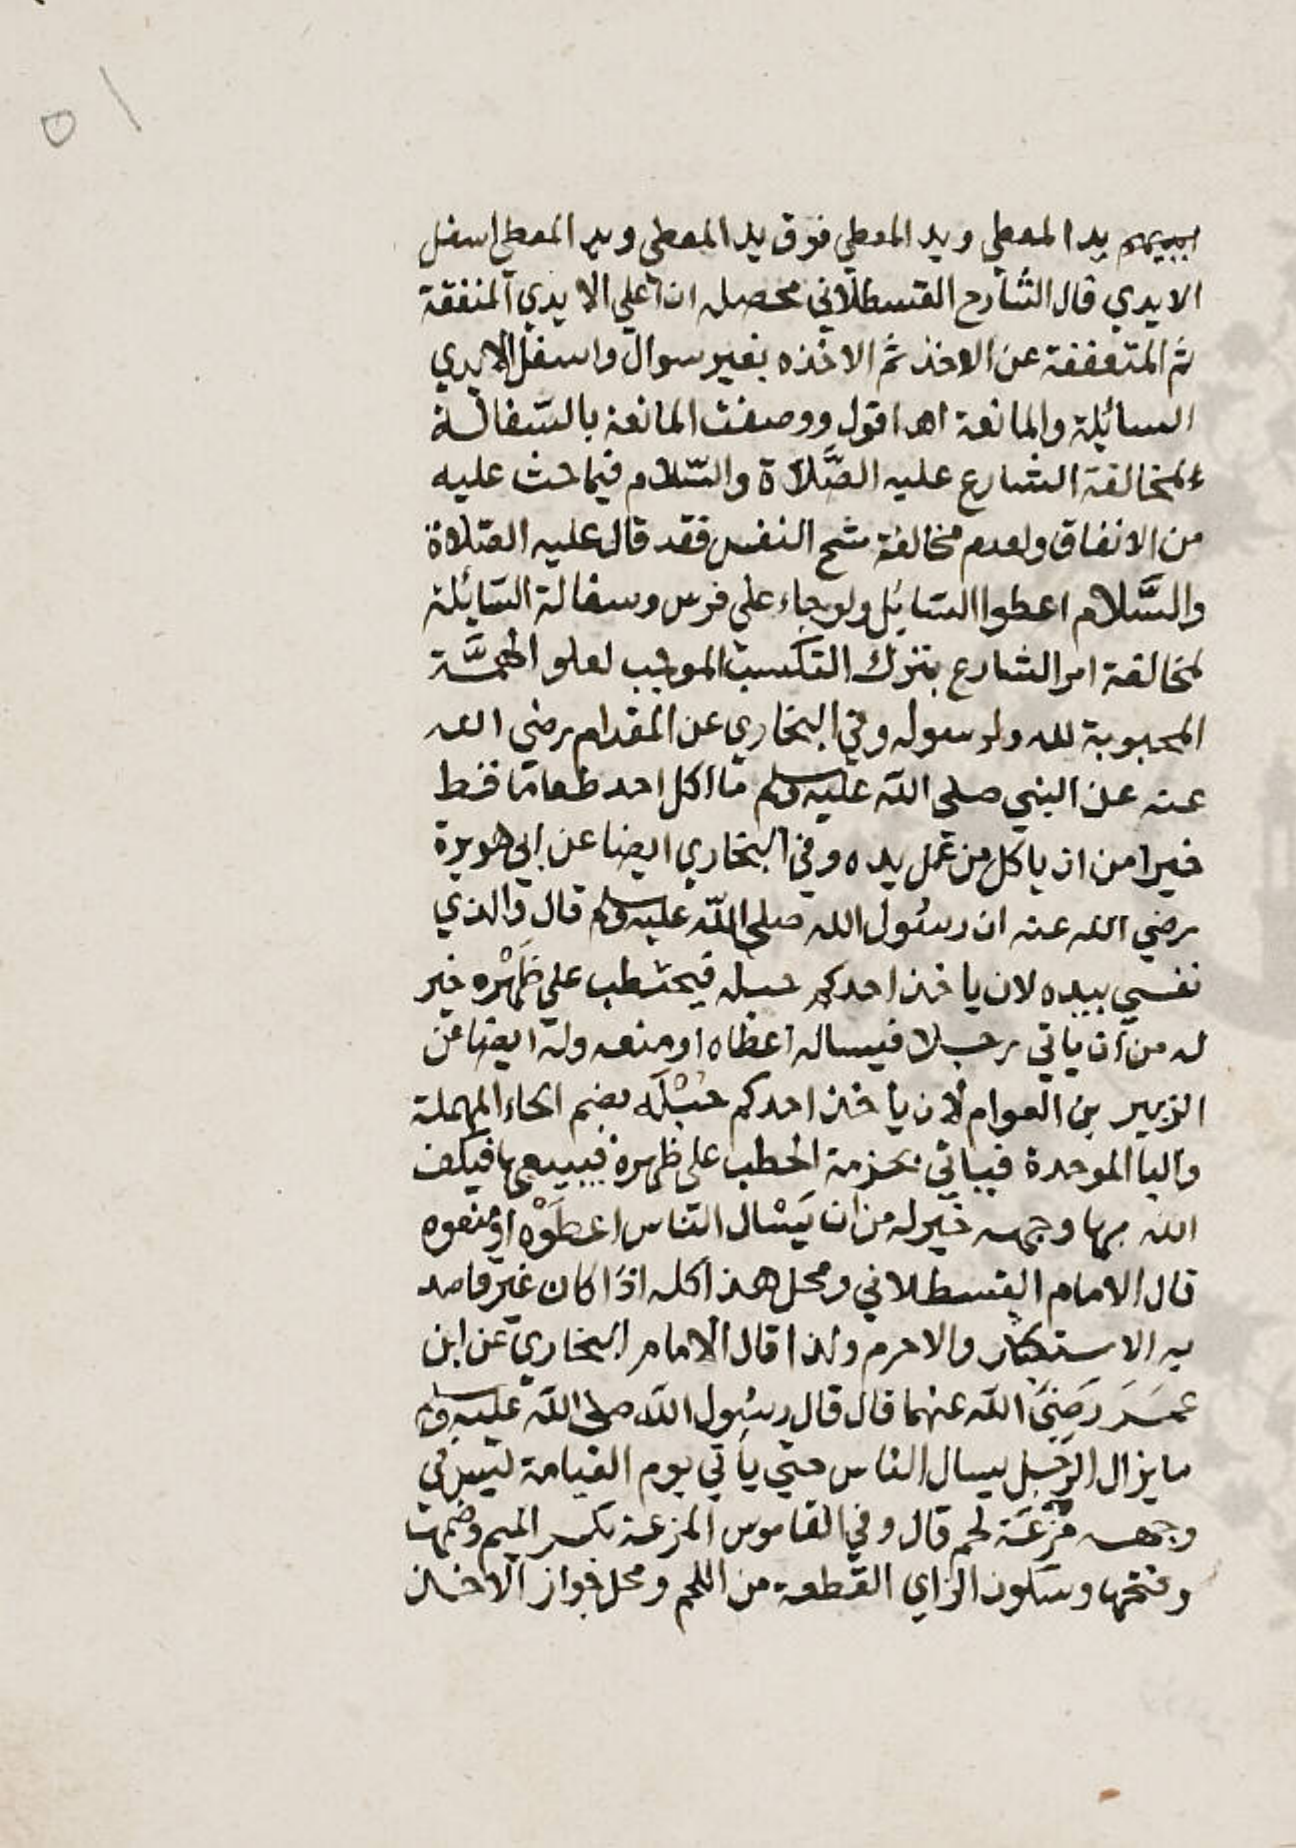 ١٥
يد المعطي ويد المعطي فوق يد المعطى ويد المعطى اسفل
الايدي قال الشارح القسطلاني محصله ان اعلي الايدي المنفقة
ثم المتعففة عن الاخذ ثم الاخذه بغير سوال واسفل الايدي
السائيلة والمانعة اهـ اقول ووصفت المانعة بالسفالة
لمخالفة الشارع عليه الصَّلاة والسّلام فيما حث عليه
من الانفاق ولعدم مخالفة شح النفس فقد قال عليه الصّلاة
والسَّلام اعطوا السّايُل ولو جاء علي فرس وسفالة السّايُلة
لمخالفة امر الشارع بترك التكسب الموجب لعلو الهمَّة
المحبوبة لله ولرسوله وفي البخاري عن المقدام رضي الله
عنه عن النبي صلى الله عليه وسلم ما اكل احد طعاما قط
خيرا من ان ياكل من عمل يده وفي البخاري ايضا عن ابي هريرة
رضي الله عنه ان رسُول الله صلى الله عليه وسلم قال والذي
نفسي بيده لان ياخذ احدكم حبله فيحتطب علي ظَهْره خير
له من ان ياتي رجلا فيساله اعطاه او منعه وله ايضا عن
الزبير بن العوام لان يأخذ احدكم حُبْلَه بضم الحاء المهملة
والبا الموحدة فيأتي بحزمة الحطب على ظهره فيبيعها فيكف
الله بها وجهه خير له من ان يَسْال الناس اعطَوْه او منعوه
قال الامام القسطلاني ومحل هذا كله اذا كان غير قاصد
به الاستكثار والا حرم ولذا قال الامام البخاري عن ابن
عمَرَ رَضِيَ الله عنهما قال قال رسُول الله صلى الله عليه وسلم
ما يزال الرَجل يسال الناس حتي يأتي يوم القيامة ليس في
وجهه مُزْعَة لحم قال وفي القاموس المزعة بكسر الميم وضمها
وفتحها وسكون الزاي القطعة من اللحم ومحل جواز الاخذ